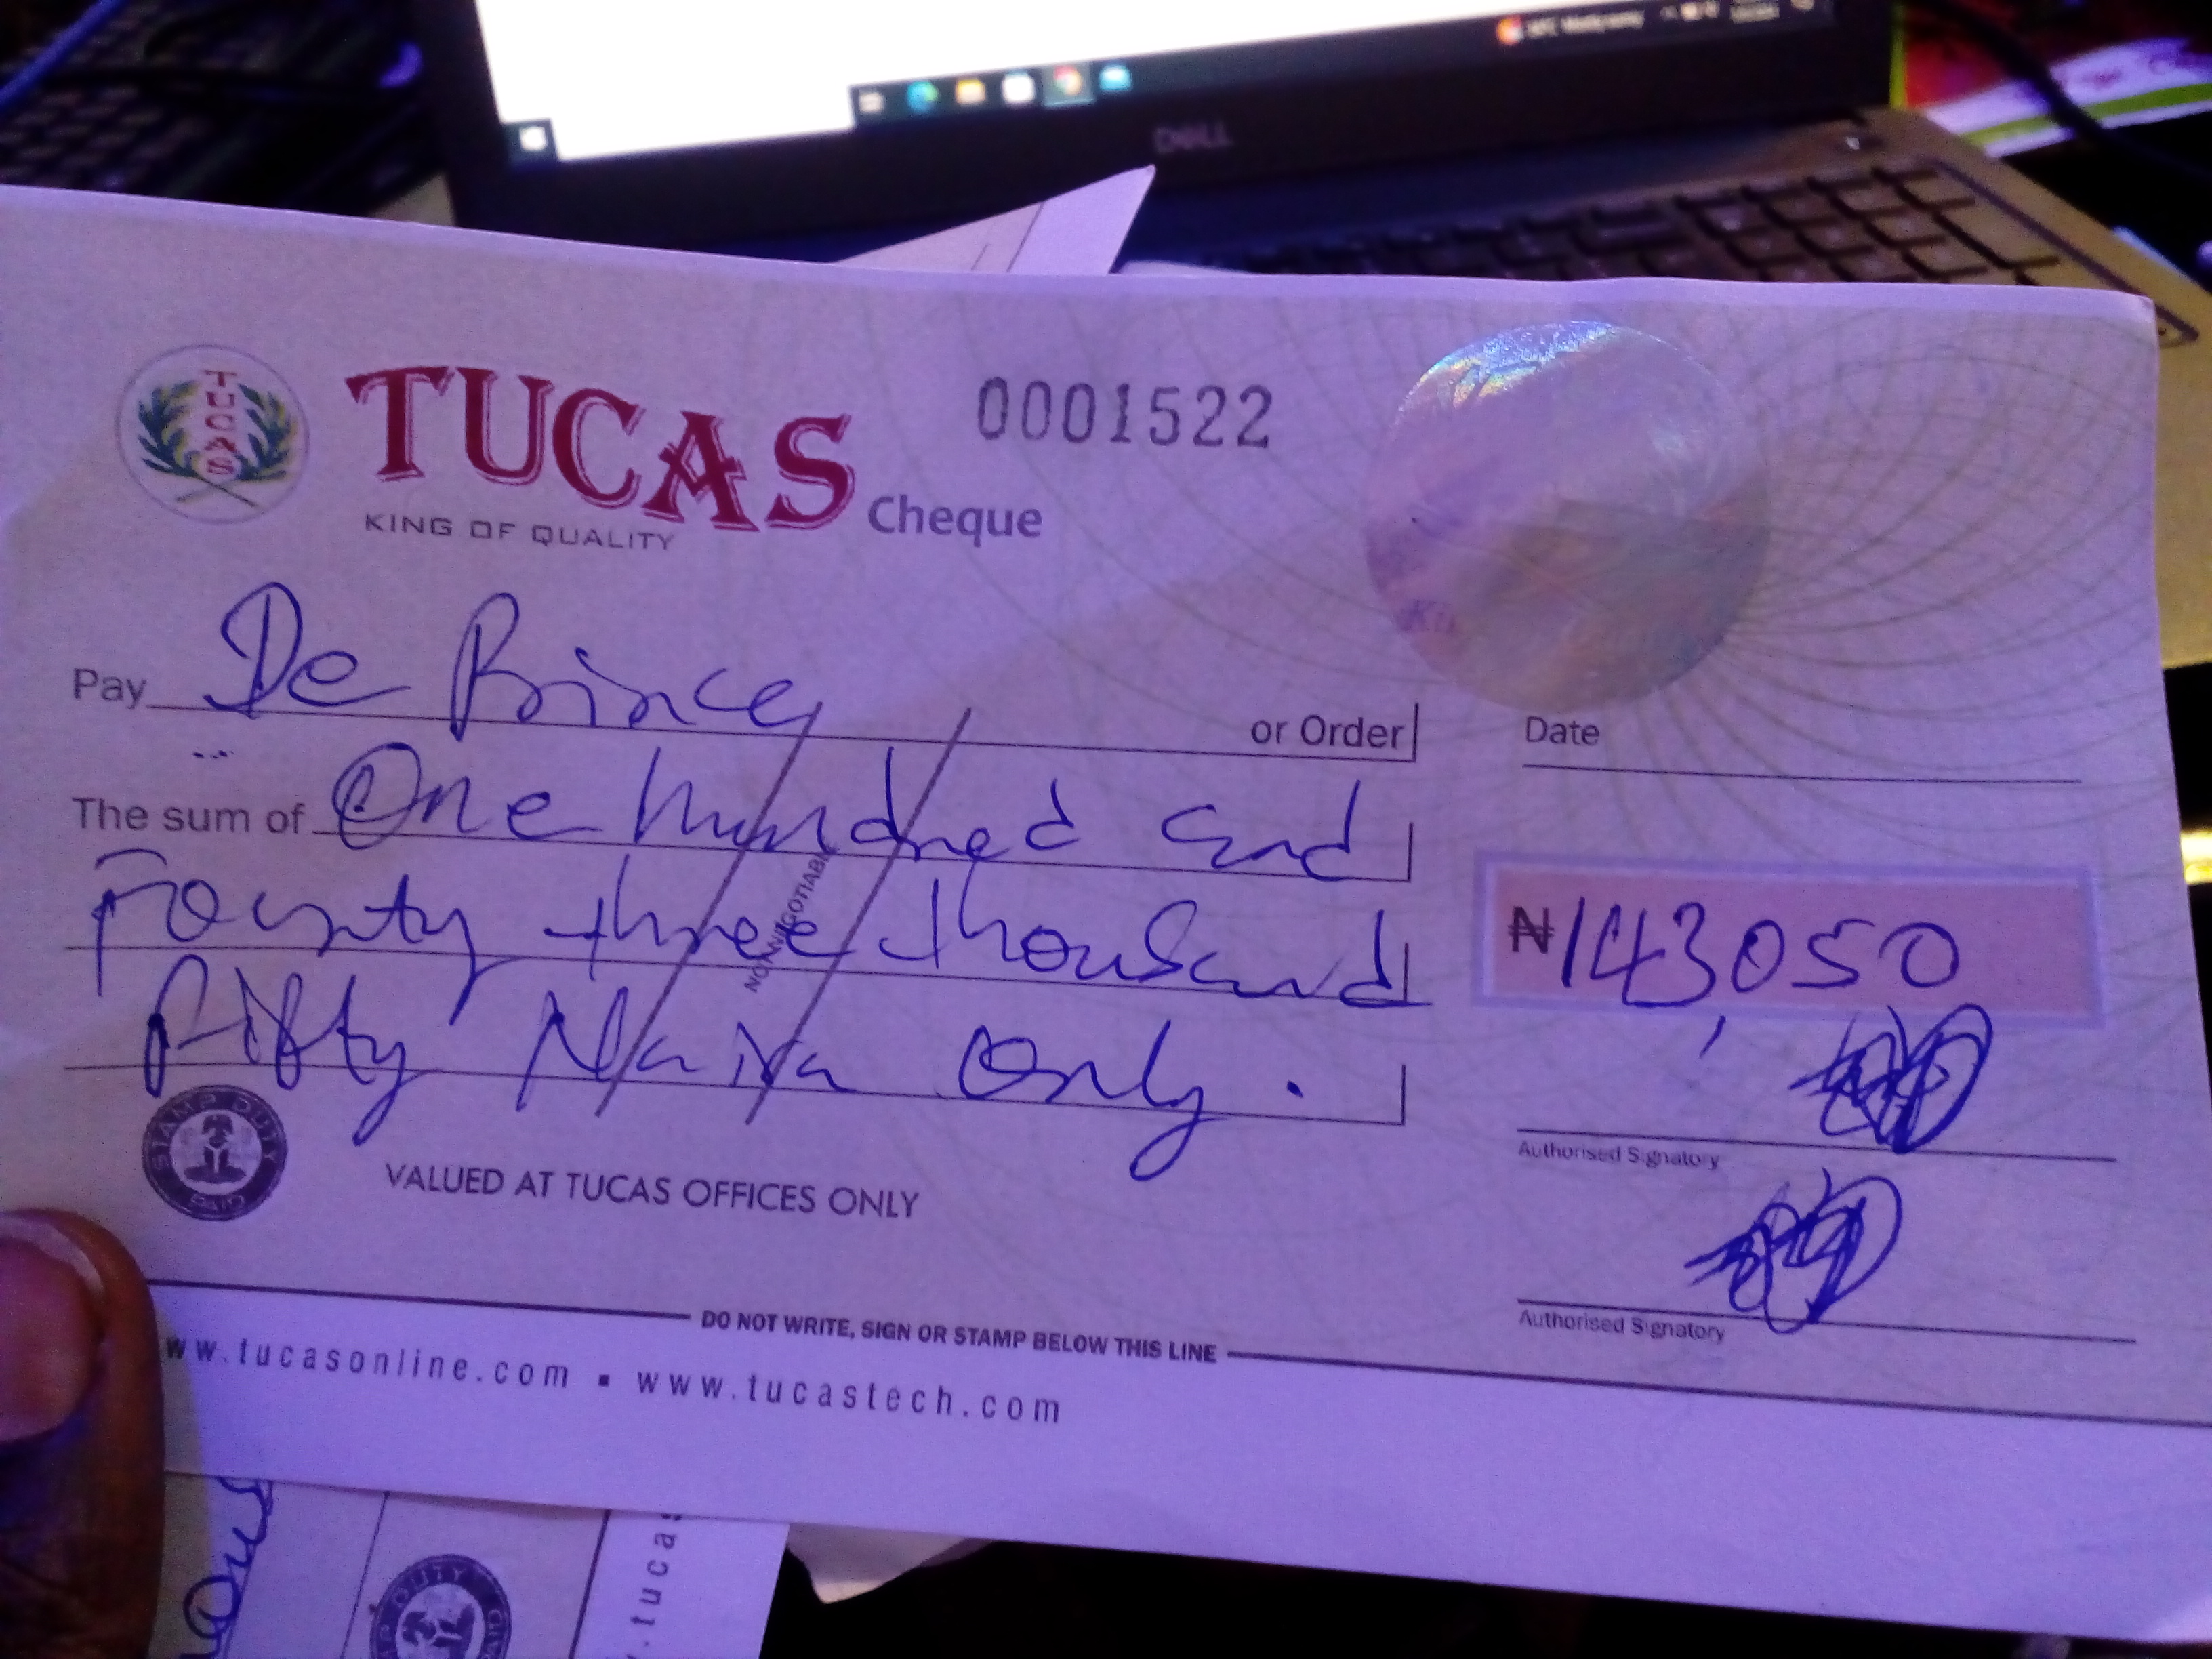 DELL
TUCAS
0001522
TUCAS
KING OF QUALITY
Cheque
Pay De Prince
or Order
Date
The sum of One hundred and
Fourty three thousand
₦143,050
Fifty Naira Only.
NOT NEGOTIABLE
Authorised Signatory
STAMP DUTY
PAID
VALUED AT TUCAS OFFICES ONLY
Authorised Signatory
DO NOT WRITE, SIGN OR STAMP BELOW THIS LINE
ww.tucasonline.com ▪ www.tucastech.com
.tucas